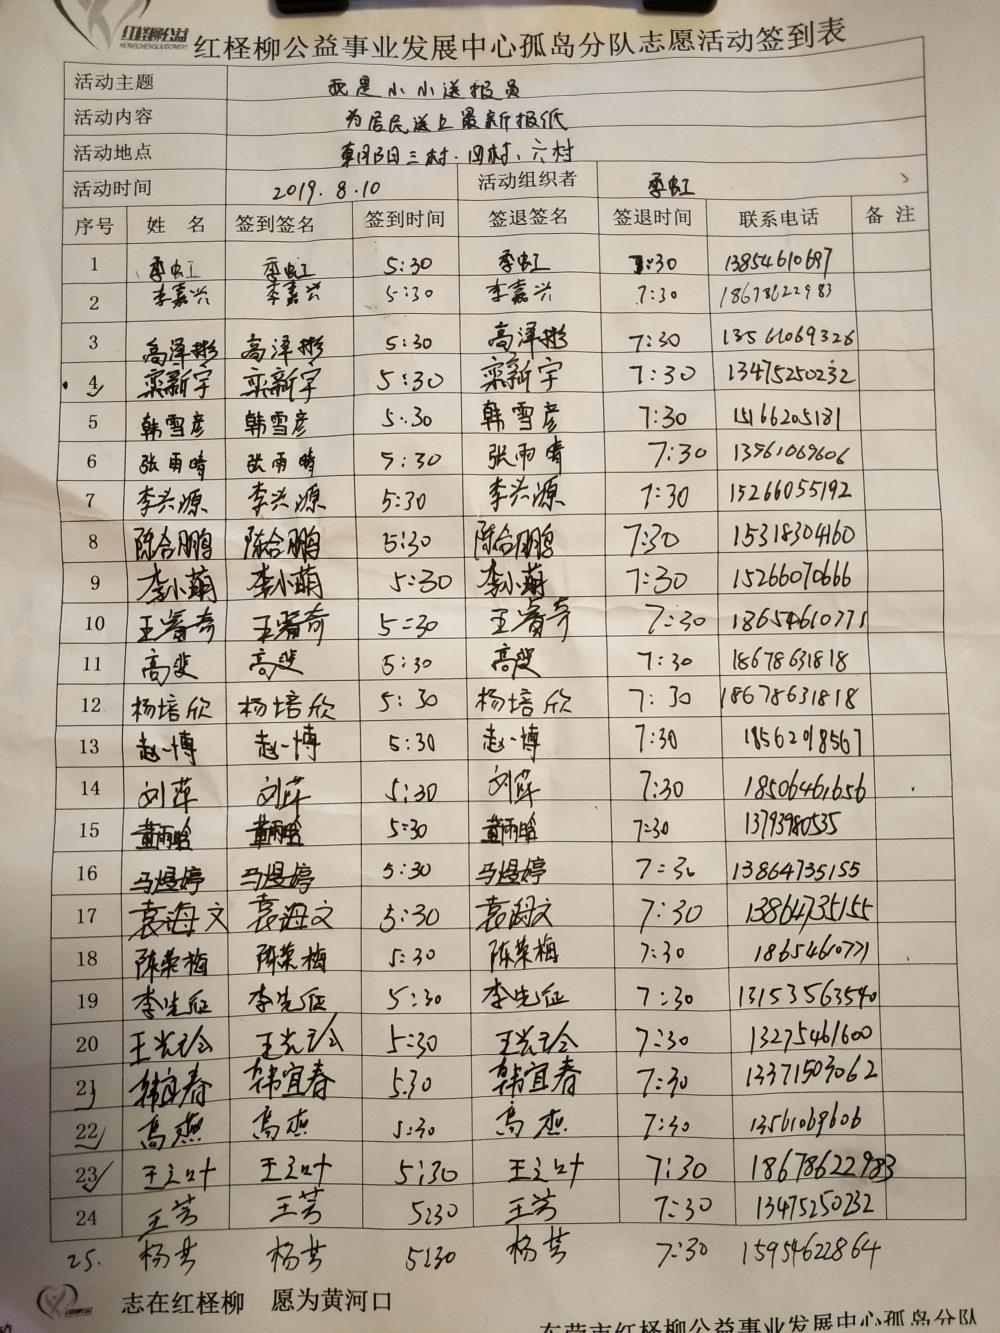 红柽柳公益
HONGCHENGLIUGONGYI
红柽柳公益事业发展中心孤岛分队志愿活动签到表
活动主题 我是小小送报员
活动内容 为居民送上最新报纸
活动地点 朝阳三村、四村、六村
活动时间 2019.8.10 活动组织者 季虹
序号 姓 名 签到签名 签到时间 签退签名 签退时间 联系电话 备 注
1 季虹 季虹 5:30 季虹 7:30 13854610687
2 李嘉兴 李嘉兴 5:30 李嘉兴 7:30 18678622983
3 高泽彬 高泽彬 5:30 高泽彬 7:30 13561069326
4 栾新宇 栾新宇 5:30 栾新宇 7:30 13475250232
5 韩雪彦 韩雪彦 5:30 韩雪彦 7:30 15166205181
6 张雨晴 张雨晴 5:30 张雨晴 7:30 13561069606
7 李兴源 李兴源 5:30 李兴源 7:30 15266055192
8 陈合鹏 陈合鹏 5:30 陈合鹏 7:30 15318304160
9 李小萌 李小萌 5:30 李小萌 7:30 15266070666
10 王睿奇 王睿奇 5:30 王睿奇 7:30 18654610771
11 高斐 高斐 5:30 高斐 7:30 18678631818
12 杨培欣 杨培欣 5:30 杨培欣 7:30 18678631818
13 赵一博 赵一博 5:30 赵一博 7:30 18562018567
14 刘萍 刘萍 5:30 刘萍 7:30 18506461656
15 黄雨晗 黄雨晗 5:30 黄雨晗 7:30 13793980535
16 马煜婷 马煜婷 5:30 马煜婷 7:30 13864735155
17 袁海文 袁海文 5:30 袁海文 7:30 13864735155
18 陈荣梅 陈荣梅 5:30 陈荣梅 7:30 18654610771
19 李先征 李先征 5:30 李先征 7:30 13153563540
20 5:30 7:30 13275461600
21 韩宜春 韩宜春 5:30 韩宜春 7:30 13371503062
22 高燕 高燕 5:30 高燕 7:30 13561069606
23 王立叶 王立叶 5:30 王立叶 7:30 18678622983
24 王芳 王芳 5:30 王芳 7:30 13475250232
25. 杨芸 杨芸 5:30 杨芸 7:30 15954622864
志在红柽柳 愿为黄河口
东营市红柽柳公益事业发展中心孤岛分队